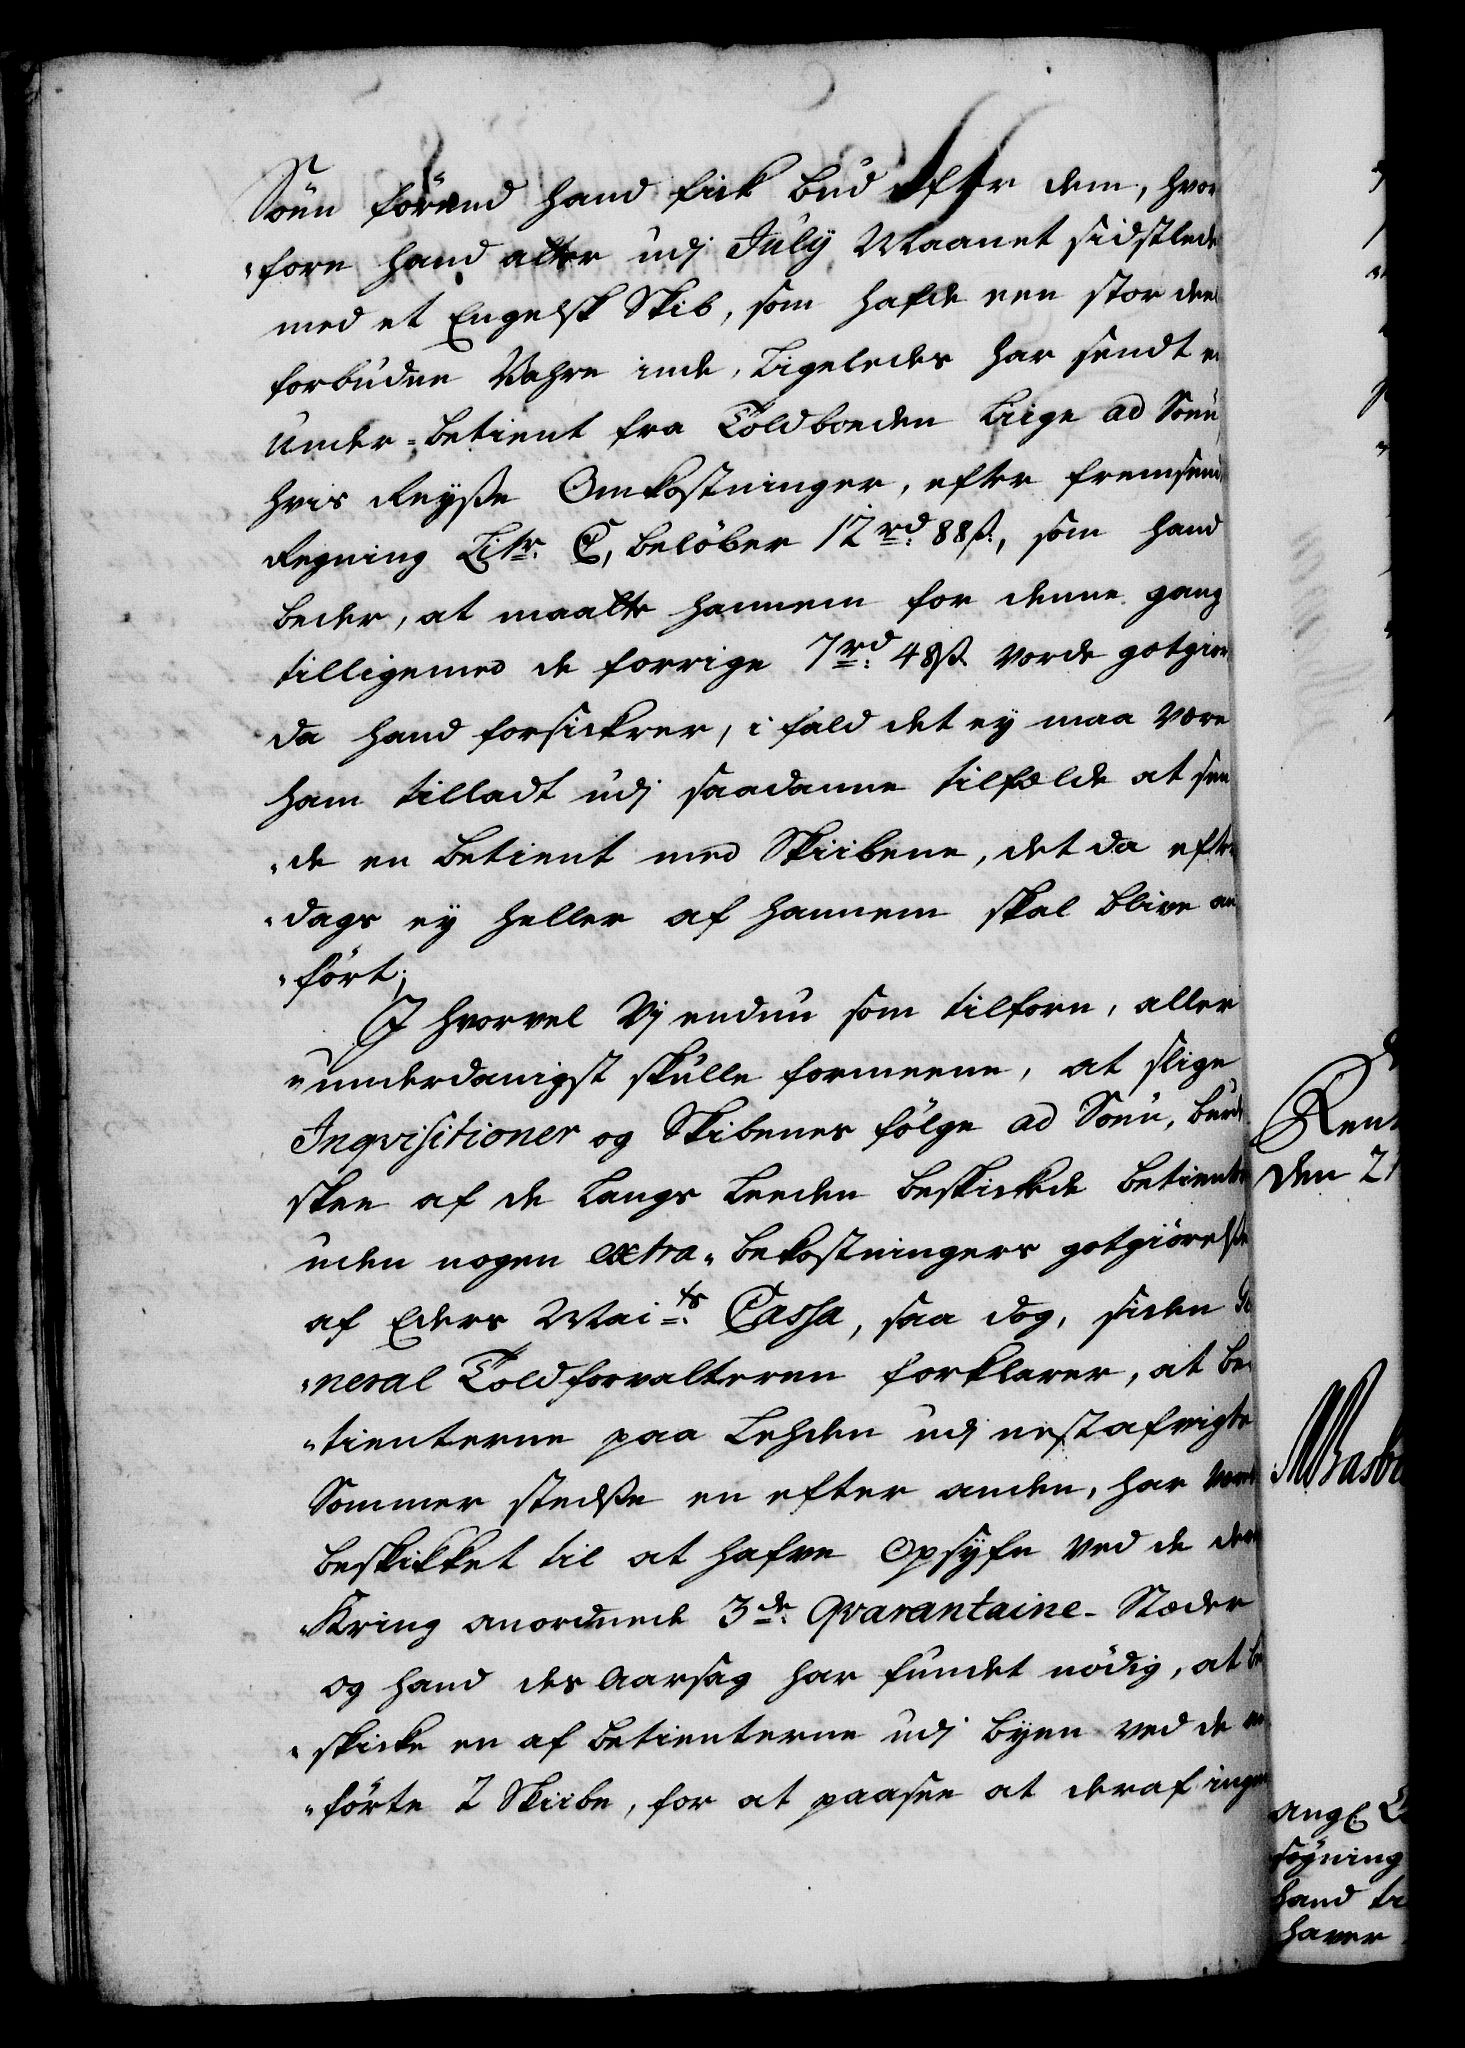 Söen förend hand fick bud efter dem, hvor
"fore hand atter udj July Maanet sidstleden
med et Engelsk Skib, som hafde een stor deel
forbudne Vahre inde, ligeledes har sendt en
Under-betient fra Toldboeden liige ad Söen,
hvis Reyse Omkostninger, efter fremsendte
Regning Litr: C, belöber 12 rd: 88 ß, som hand
beder, at maatte hannem for denne gang
tilligemed de forrige 7 rd: 48 ß vorde gotgiort
da hand forsickrer, i fald det ey maa være
ham tilladt udj saadanne tilfælde at sen
"de en betient med Skibene, det da efter
"dags ey heller af hannem skal blive an
"fört;
I hvorvel Vj endnu som tilforn, aller
"underdanigst skulle formeene, at slige
Inqvisitioner og Skibenes fölge ad Söen, burde
skee af de langs Leeden beskickede betiente
uden nogen extra-bekostningers gotgiörelse
af Eders Mai:ts Cassa, saa dog, siden Ge
"neral Toldforvalteren forklarer, at be
"tienterne paa Lehden udj nestafvigte
Sommer stedse en efter anden, har været
beskikket til at hafve Opsyfn ved de der
"Kring anordnede 3de Qvarantaine-Stæder
og hand des Aarsag har fundet nödig, at be
"skicke en af betienterne udj byen ved de an
"förte 2 Skiibe, for at paasee at deraf ingen
Rent
den 21
ang:
föyning
hand
haver